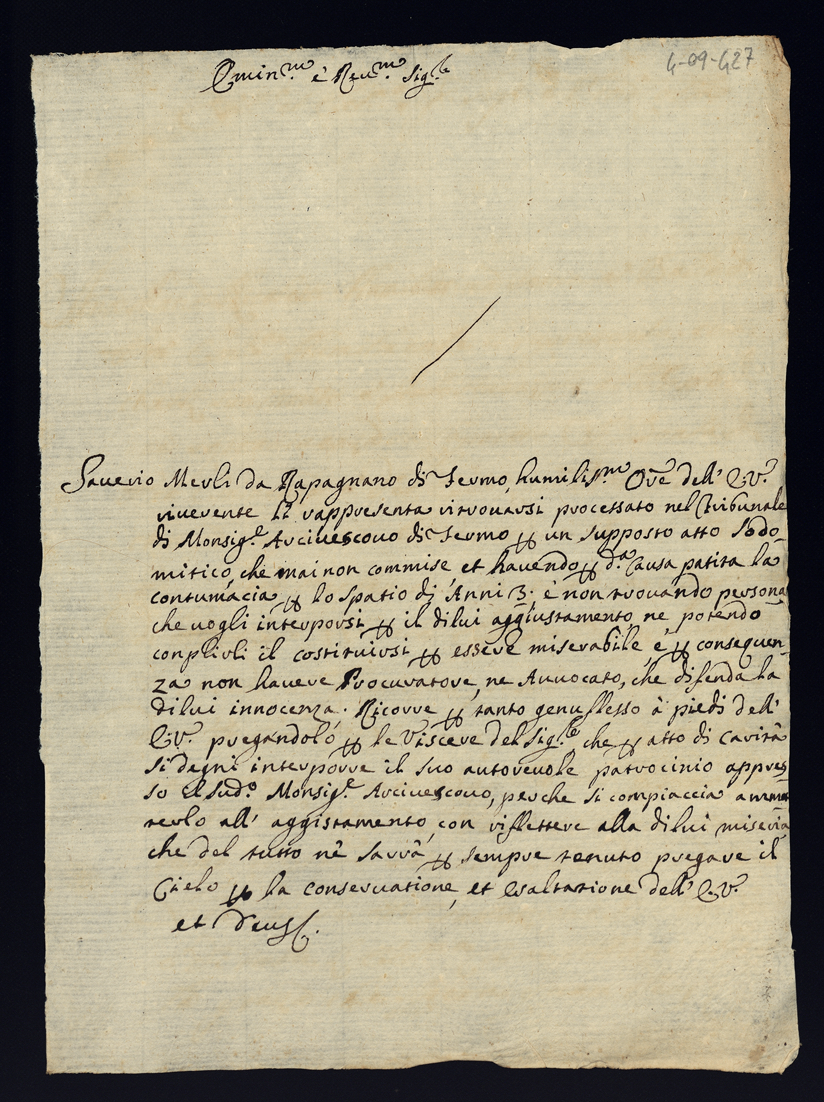 4-09-427
Emin.mo è Reu.mo Sig.re
Sauerio Merli da Rapagnano di Fermo, humiliss.mo Ore dell' E.V.
riuerente li rappresenta ritrouarsi processato nel Tribunale
di Monsig.r Arciuescouo di Fermo p un supposto atto Sodo-
mitico, che mai non commise et hauendo p d.a Causa patita la
contumacia p lo spatio di Anni 3. è non trouando persona
che uogli interporsi p il dilui aggiustamento, ne potendo
conplirli il costituirsi p essere miserabile, é p consequen-
za non hauere Procuratore, ne Auuocato, che difenda la
dilui innocenza. Ricorre p tanto genuflesso à piedi dell'
E.V. pregandolo p le Viscere del Sig.re che p atto di Carità
si degni interporre il suo autoreuole patrocinio appres-
so el sud.o Monsig.r Arciuescouo, perche si compiaccia amme-
terlo all' aggistamento, con riflettere alla dilui miseria
che del tutto nè sarrà p sempre tenuto pregare il
Cielo p la conseruatione, et esaltatione dell' E.V.
et Deus